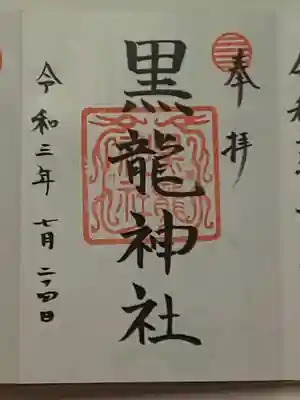 奉拝
黒龍神社
令和三年七月二十四日